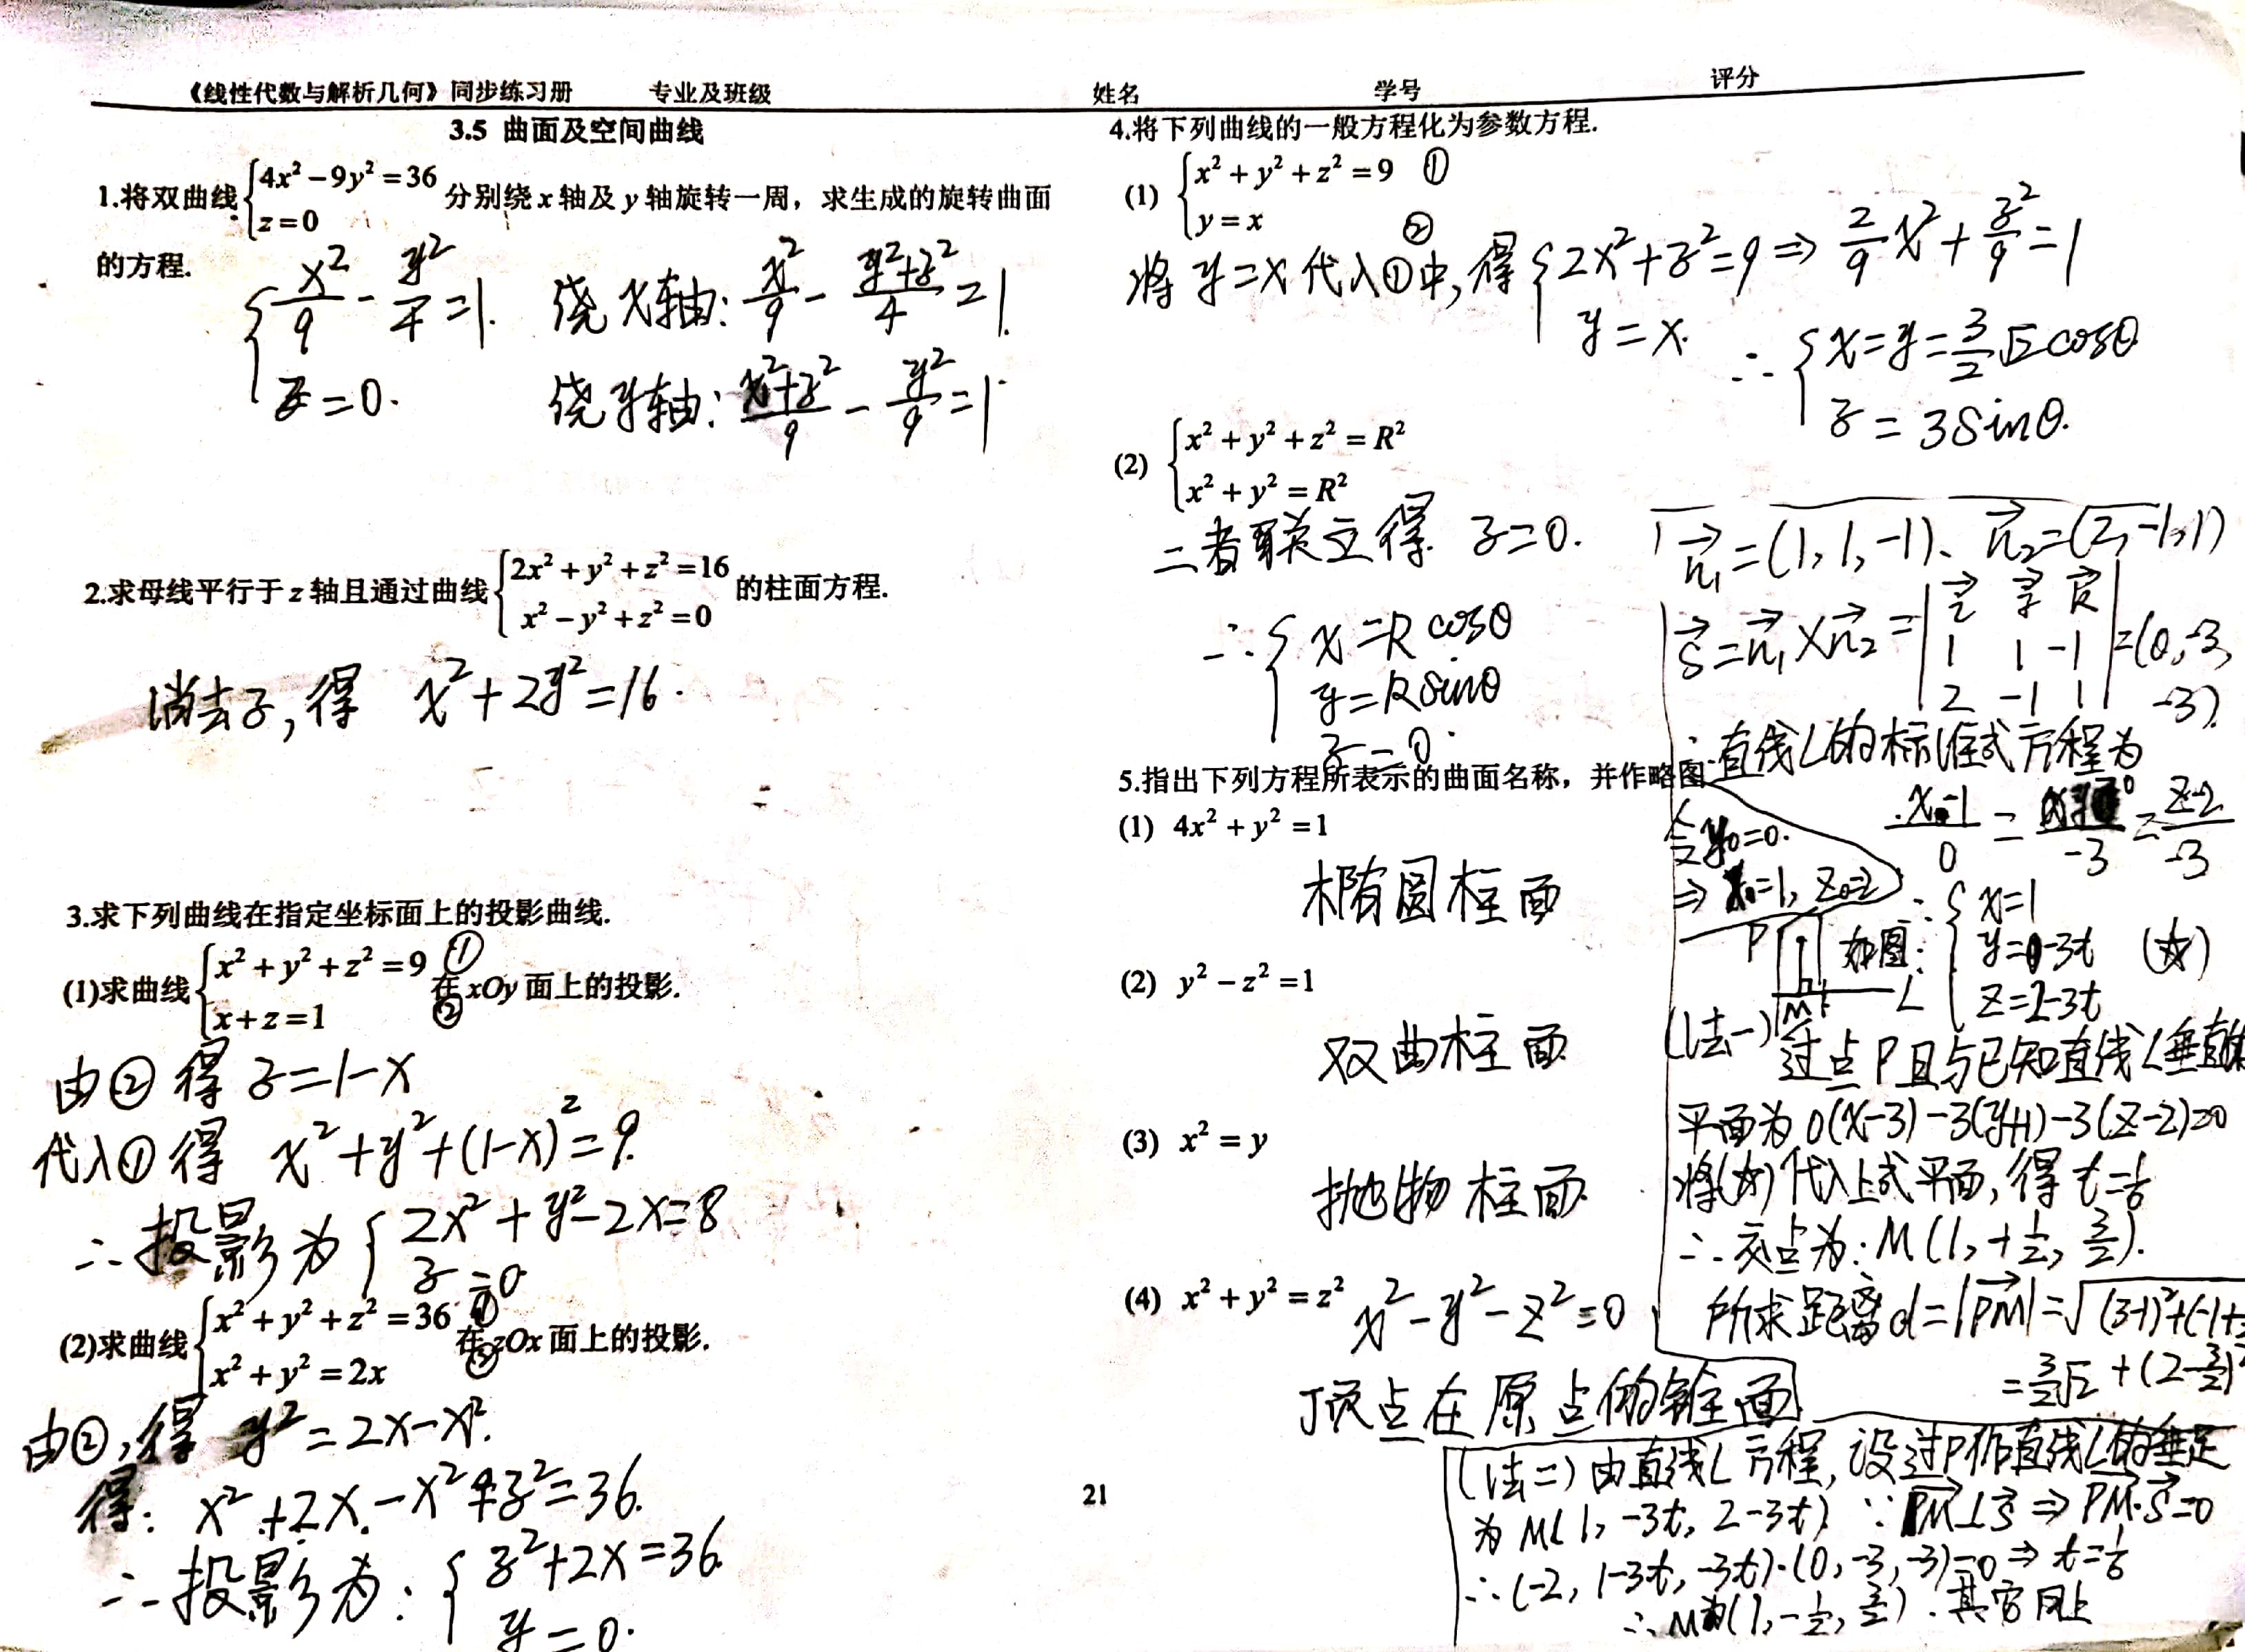 《线性代数与解析几何》同步练习册 专业及班级 姓名 学号 评分
3.5 曲面及空间曲线
1.将双曲线{4x²−9y²=36, z=0 分别绕x轴及y轴旋转一周，求生成的旋转曲面
的方程.
{x²/9 − y²/4 =1. 绕x轴: x²/9 − (y²+z²)/4 =1.
z=0. 绕y轴: (x²+z²)/9 − y²/9 =1.
2.求母线平行于z轴且通过曲线{2x²+y²+z²=16, x²−y²+z²=0 的柱面方程.
消去z, 得 x²+2y²=16.
3.求下列曲线在指定坐标面上的投影曲线.
(1)求曲线{x²+y²+z²=9 ①, x+z=1 ② 在xOy面上的投影.
由②得 z=1−x
代入①得 x²+y²+(1−x)²=9.
∴投影为{2x²+y²−2x=8
z=0
(2)求曲线{x²+y²+z²=36 ①, x²+y²=2x ② 在zOx面上的投影.
由②,得 y²=2x−x².
得: x²+2x−x²+z²=36.
∴投影为: {z²+2x=36
y=0.
4.将下列曲线的一般方程化为参数方程.
(1) {x²+y²+z²=9 ①
y=x ②
将y=x代入①中,得{2x²+z²=9 ⇒ 2/9 x²+z²/9=1
y=x.
∴{x=y=3/2 √2 cosθ
z=3sinθ.
(2) {x²+y²+z²=R²
x²+y²=R²
二者联立得 z=0.
∴{x=Rcosθ
y=Rsinθ
z=0.
5.指出下列方程所表示的曲面名称，并作略图
(1) 4x²+y²=1
椭圆柱面
(2) y²−z²=1
双曲柱面
(3) x²=y
抛物柱面.
(4) x²+y²=z² x²−y²−z²=0
顶点在原点的锥面
n₁→=(1,1,−1)、 n₂→=(2,−1,1)
s→=n₁→×n₂→=|i→ j→ k→; 1 1 −1; 2 −1 1|=(0,−3,
−3).
∴直线L的标准式方程为
(x−1)/0 = /−3 = (z−2)/−3
令y₀=0.
⇒ x₀=1, z₀=2
P 如图: M L
∴{x=1
y=0−3t (☆)
z=2−3t
(法一) 过点P且与已知直线L垂直的
平面为 0(x−3)−3(y+1)−3(z−2)=0
将(☆)代入上式平面,得 t=1/6
∴交点为: M(1, +1/2, 3/2).
所求距离d=|PM→|=√(3−1)²+(−1+
+(2−3/2)²
=3/2 √2
(法二) 由直线L方程, 设过P作直线L的垂足
为M(1, −3t, 2−3t) ∵PM→⊥s→ ⇒ PM→·s→=0
∴(−2, 1−3t, −3t)·(0, −3, −3)=0 ⇒ t=1/6
∴M为(1, −1/2, 3/2). 其它同上
21